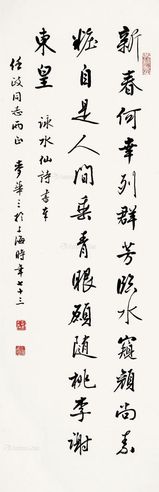 新春何幸列群芳临水窥颜尚素
妆自是人间垂青眼愿随桃李谢
东皇 咏水仙诗书奉
任政同志两正 麦华三於上海時年七十三